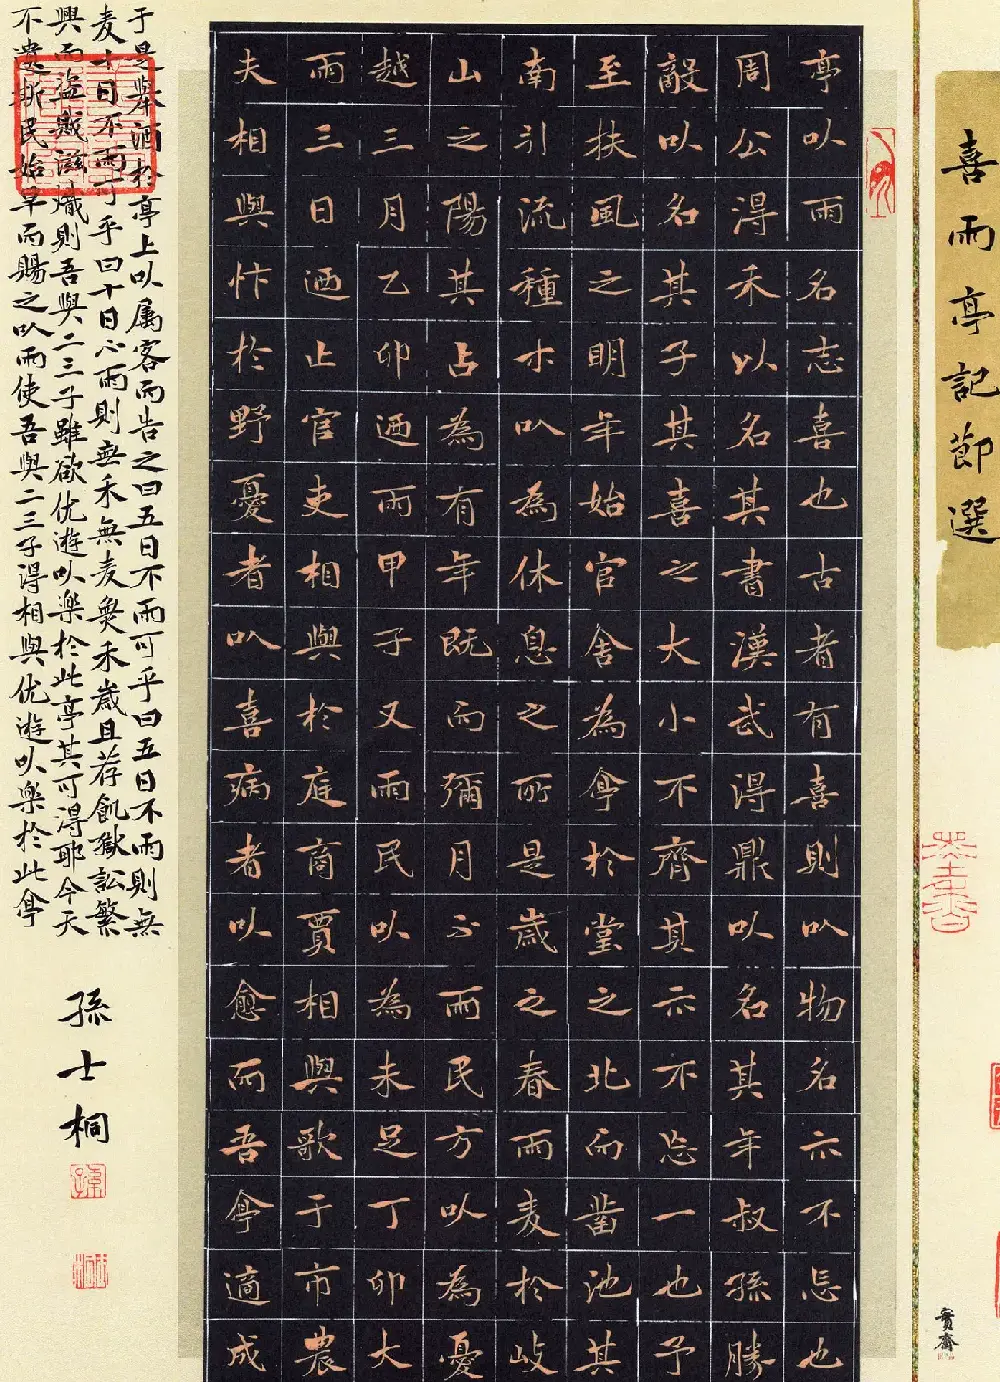 喜雨亭記節選
亭以雨名志喜也古者有喜則以物名示不忘也
周公得禾以名其書漢武得鼎以名其年叔孫勝
敵以名其子其喜之大小不齊其示不忘一也予
至扶風之明年始官舍為亭於堂之北而鑿池其
南引流種木以為休息之所是歲之春雨麦於岐
山之陽其占為有年既而彌月不雨民方以為憂
越三月乙卯迺雨甲子又雨民以為未足丁卯大
雨三日迺止官吏相與於庭商賈相與歌于市農
夫相與忭於野憂者以喜病者以愈而吾亭適成
于是舉酒於亭上以属客而告之曰五日不雨可乎曰五日不雨則無
麦十日不雨可乎曰十日不雨則無禾無麦無禾歲且荐飢獄訟繁
興而盜賊滋熾則吾與二三子雖欲优遊以樂於此亭其可得耶今天
不遺斯民始旱而賜之以雨使吾與二三子得相與优遊以樂於此亭
孫士桐